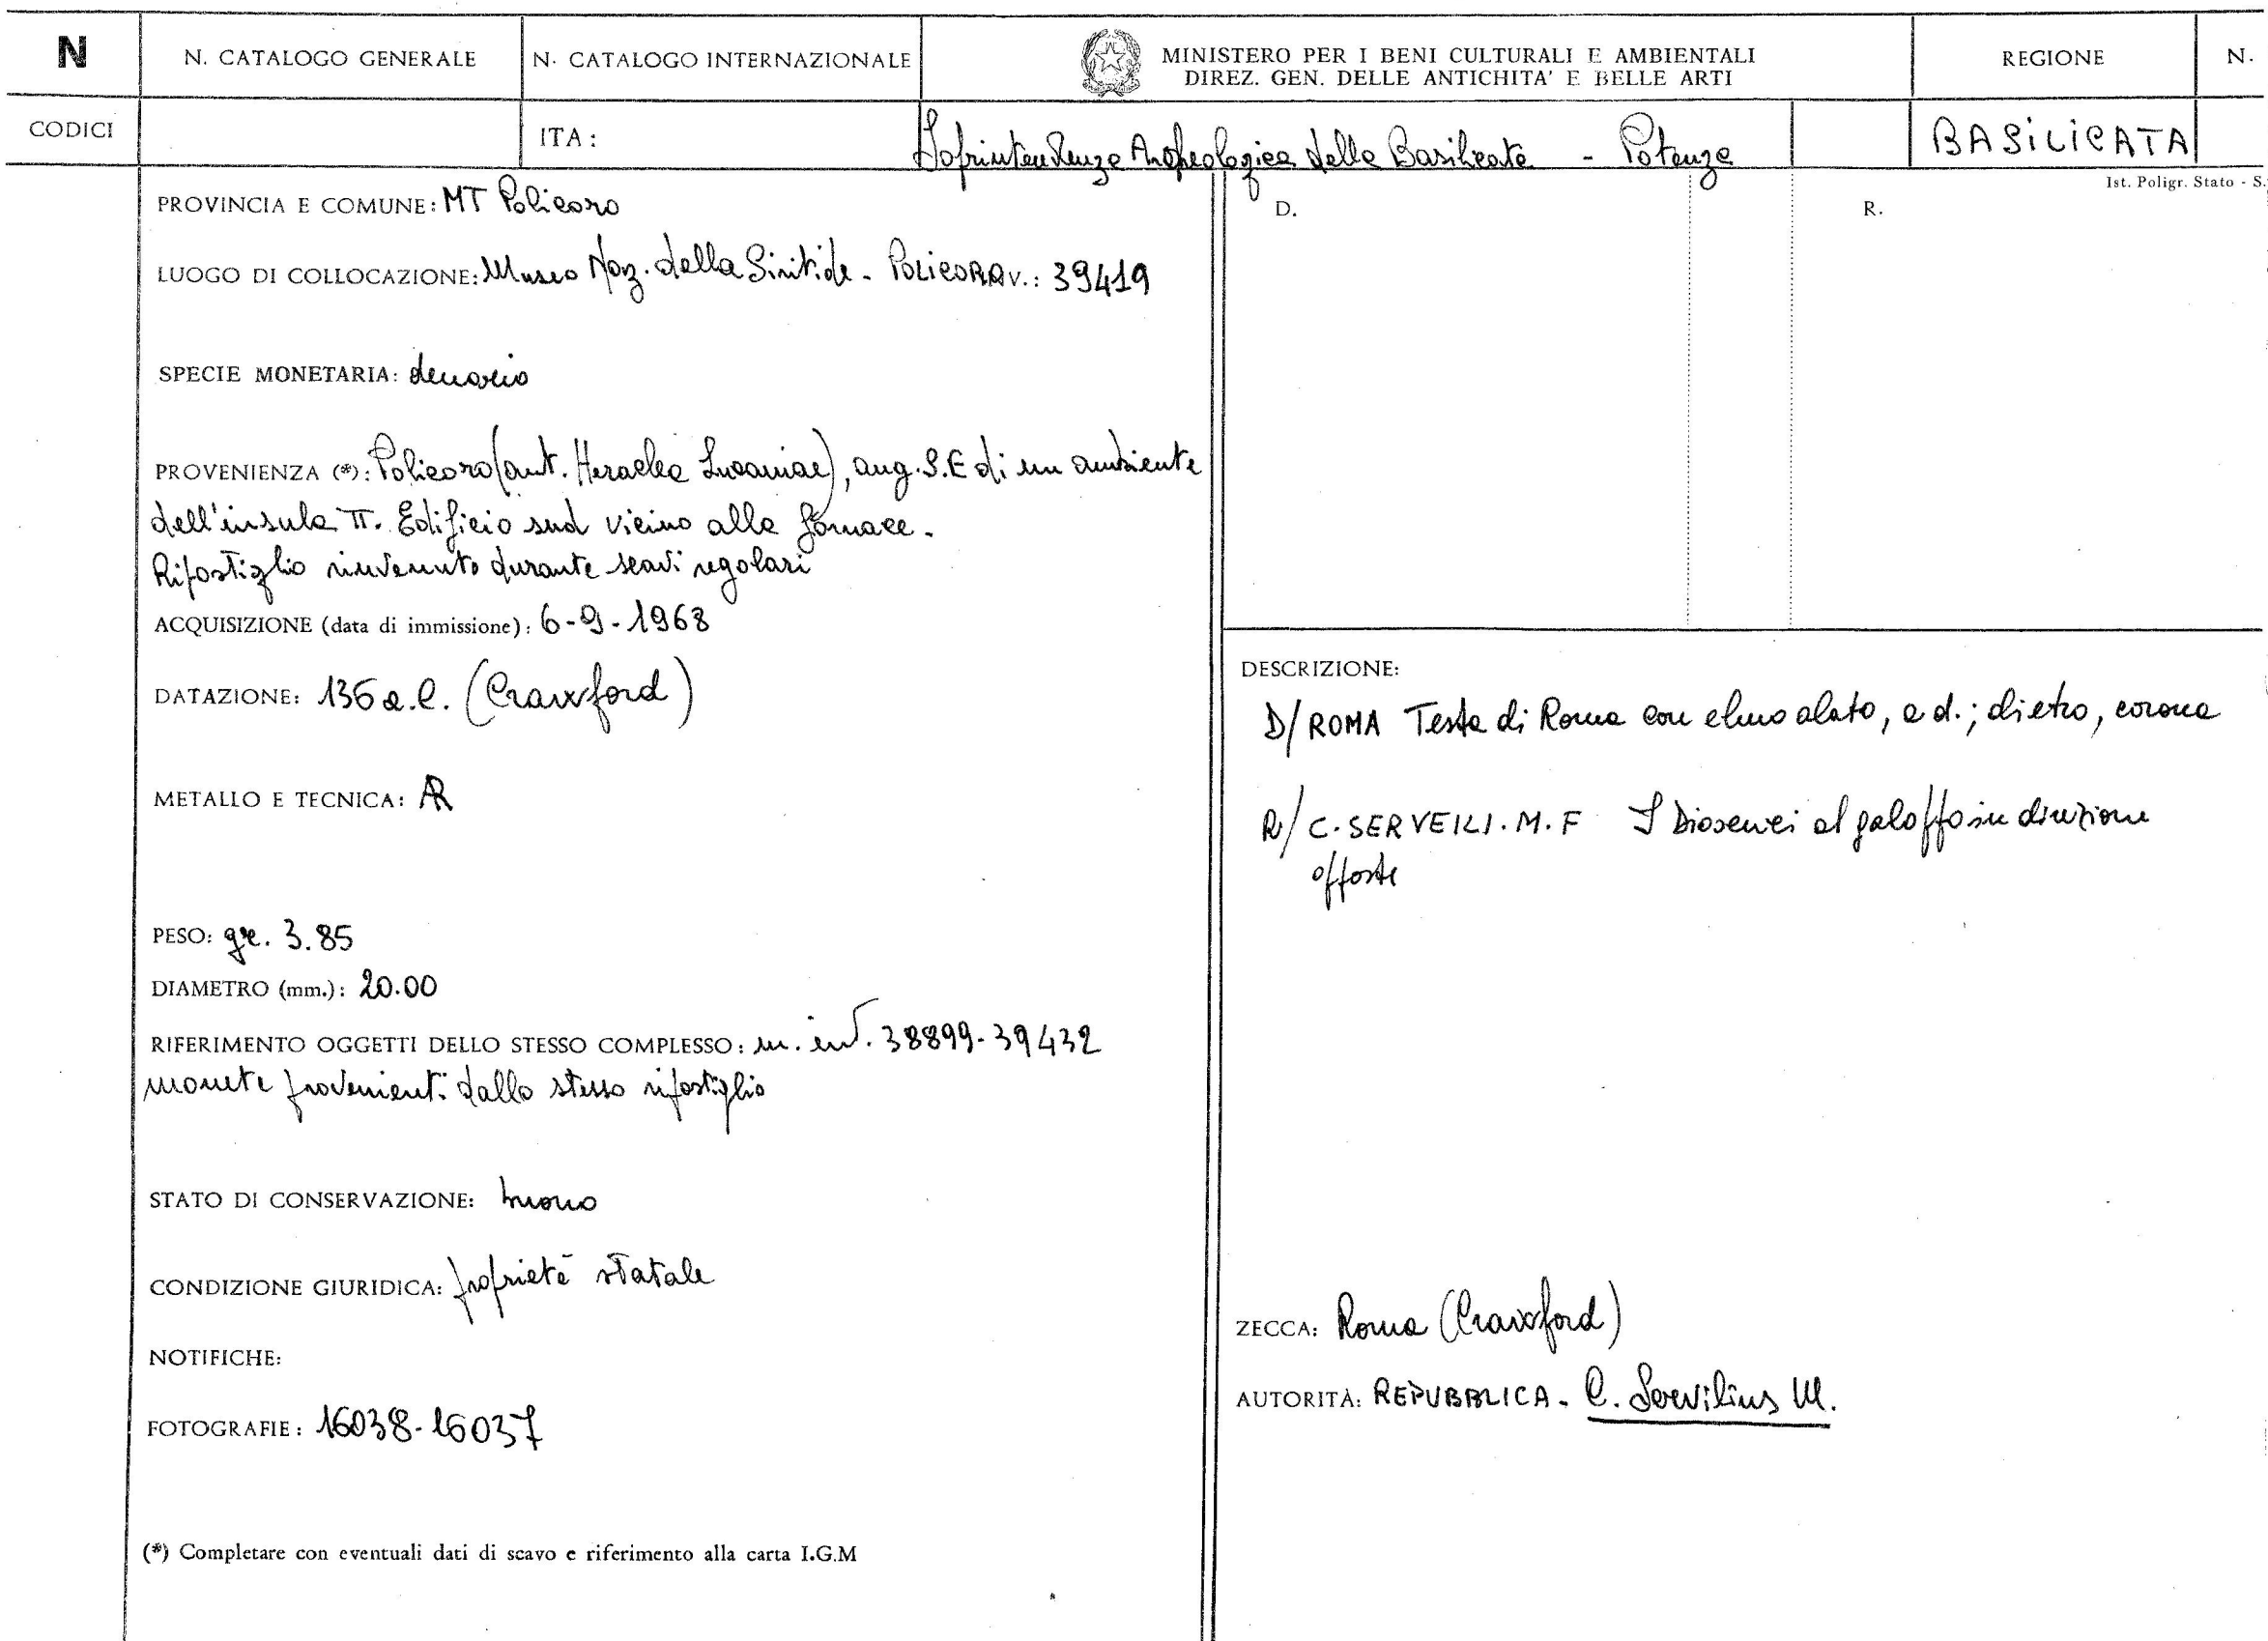 N
N. CATALOGO GENERALE
N. CATALOGO INTERNAZIONALE
MINISTERO PER I BENI CULTURALI E AMBIENTALI
DIREZ. GEN. DELLE ANTICHITA' E BELLE ARTI
REGIONE
N.
CODICI
ITA:
Soprintendenza Archeologica della Basilicata - Potenza
BASILICATA
Ist. Poligr. Stato - S.
PROVINCIA E COMUNE: MT Policoro
LUOGO DI COLLOCAZIONE: Museo Naz. della Siritide - POLICORO INV.: 39419
SPECIE MONETARIA: denario
PROVENIENZA (*): Policoro (ant. Heraclea Lucaniae), ang. S.E di un ambiente
dell'insula II. Edificio sud vicino alla fornace.
Ripostiglio rinvenuto durante scavi regolari
ACQUISIZIONE (data di immissione): 6-9-1968
DATAZIONE: 136 a.C. (Crawford)
METALLO E TECNICA: AR
PESO: gr. 3.85
DIAMETRO (mm.): 20.00
RIFERIMENTO OGGETTI DELLO STESSO COMPLESSO: n. inv. 38899-39432
monete provenienti dallo stesso ripostiglio
STATO DI CONSERVAZIONE: buono
CONDIZIONE GIURIDICA: proprietà statale
NOTIFICHE:
FOTOGRAFIE: 16038-16037
(*) Completare con eventuali dati di scavo e riferimento alla carta I.G.M
D.
R.
DESCRIZIONE:
D/ ROMA Testa di Roma con elmo alato, a d.; dietro, corona
R/ C.SERVEILI.M.F I Dioscuri al galoppo in direzione
opposte
ZECCA: Roma (Crawford)
AUTORITÀ: REPUBBLICA - C. Servilius M.